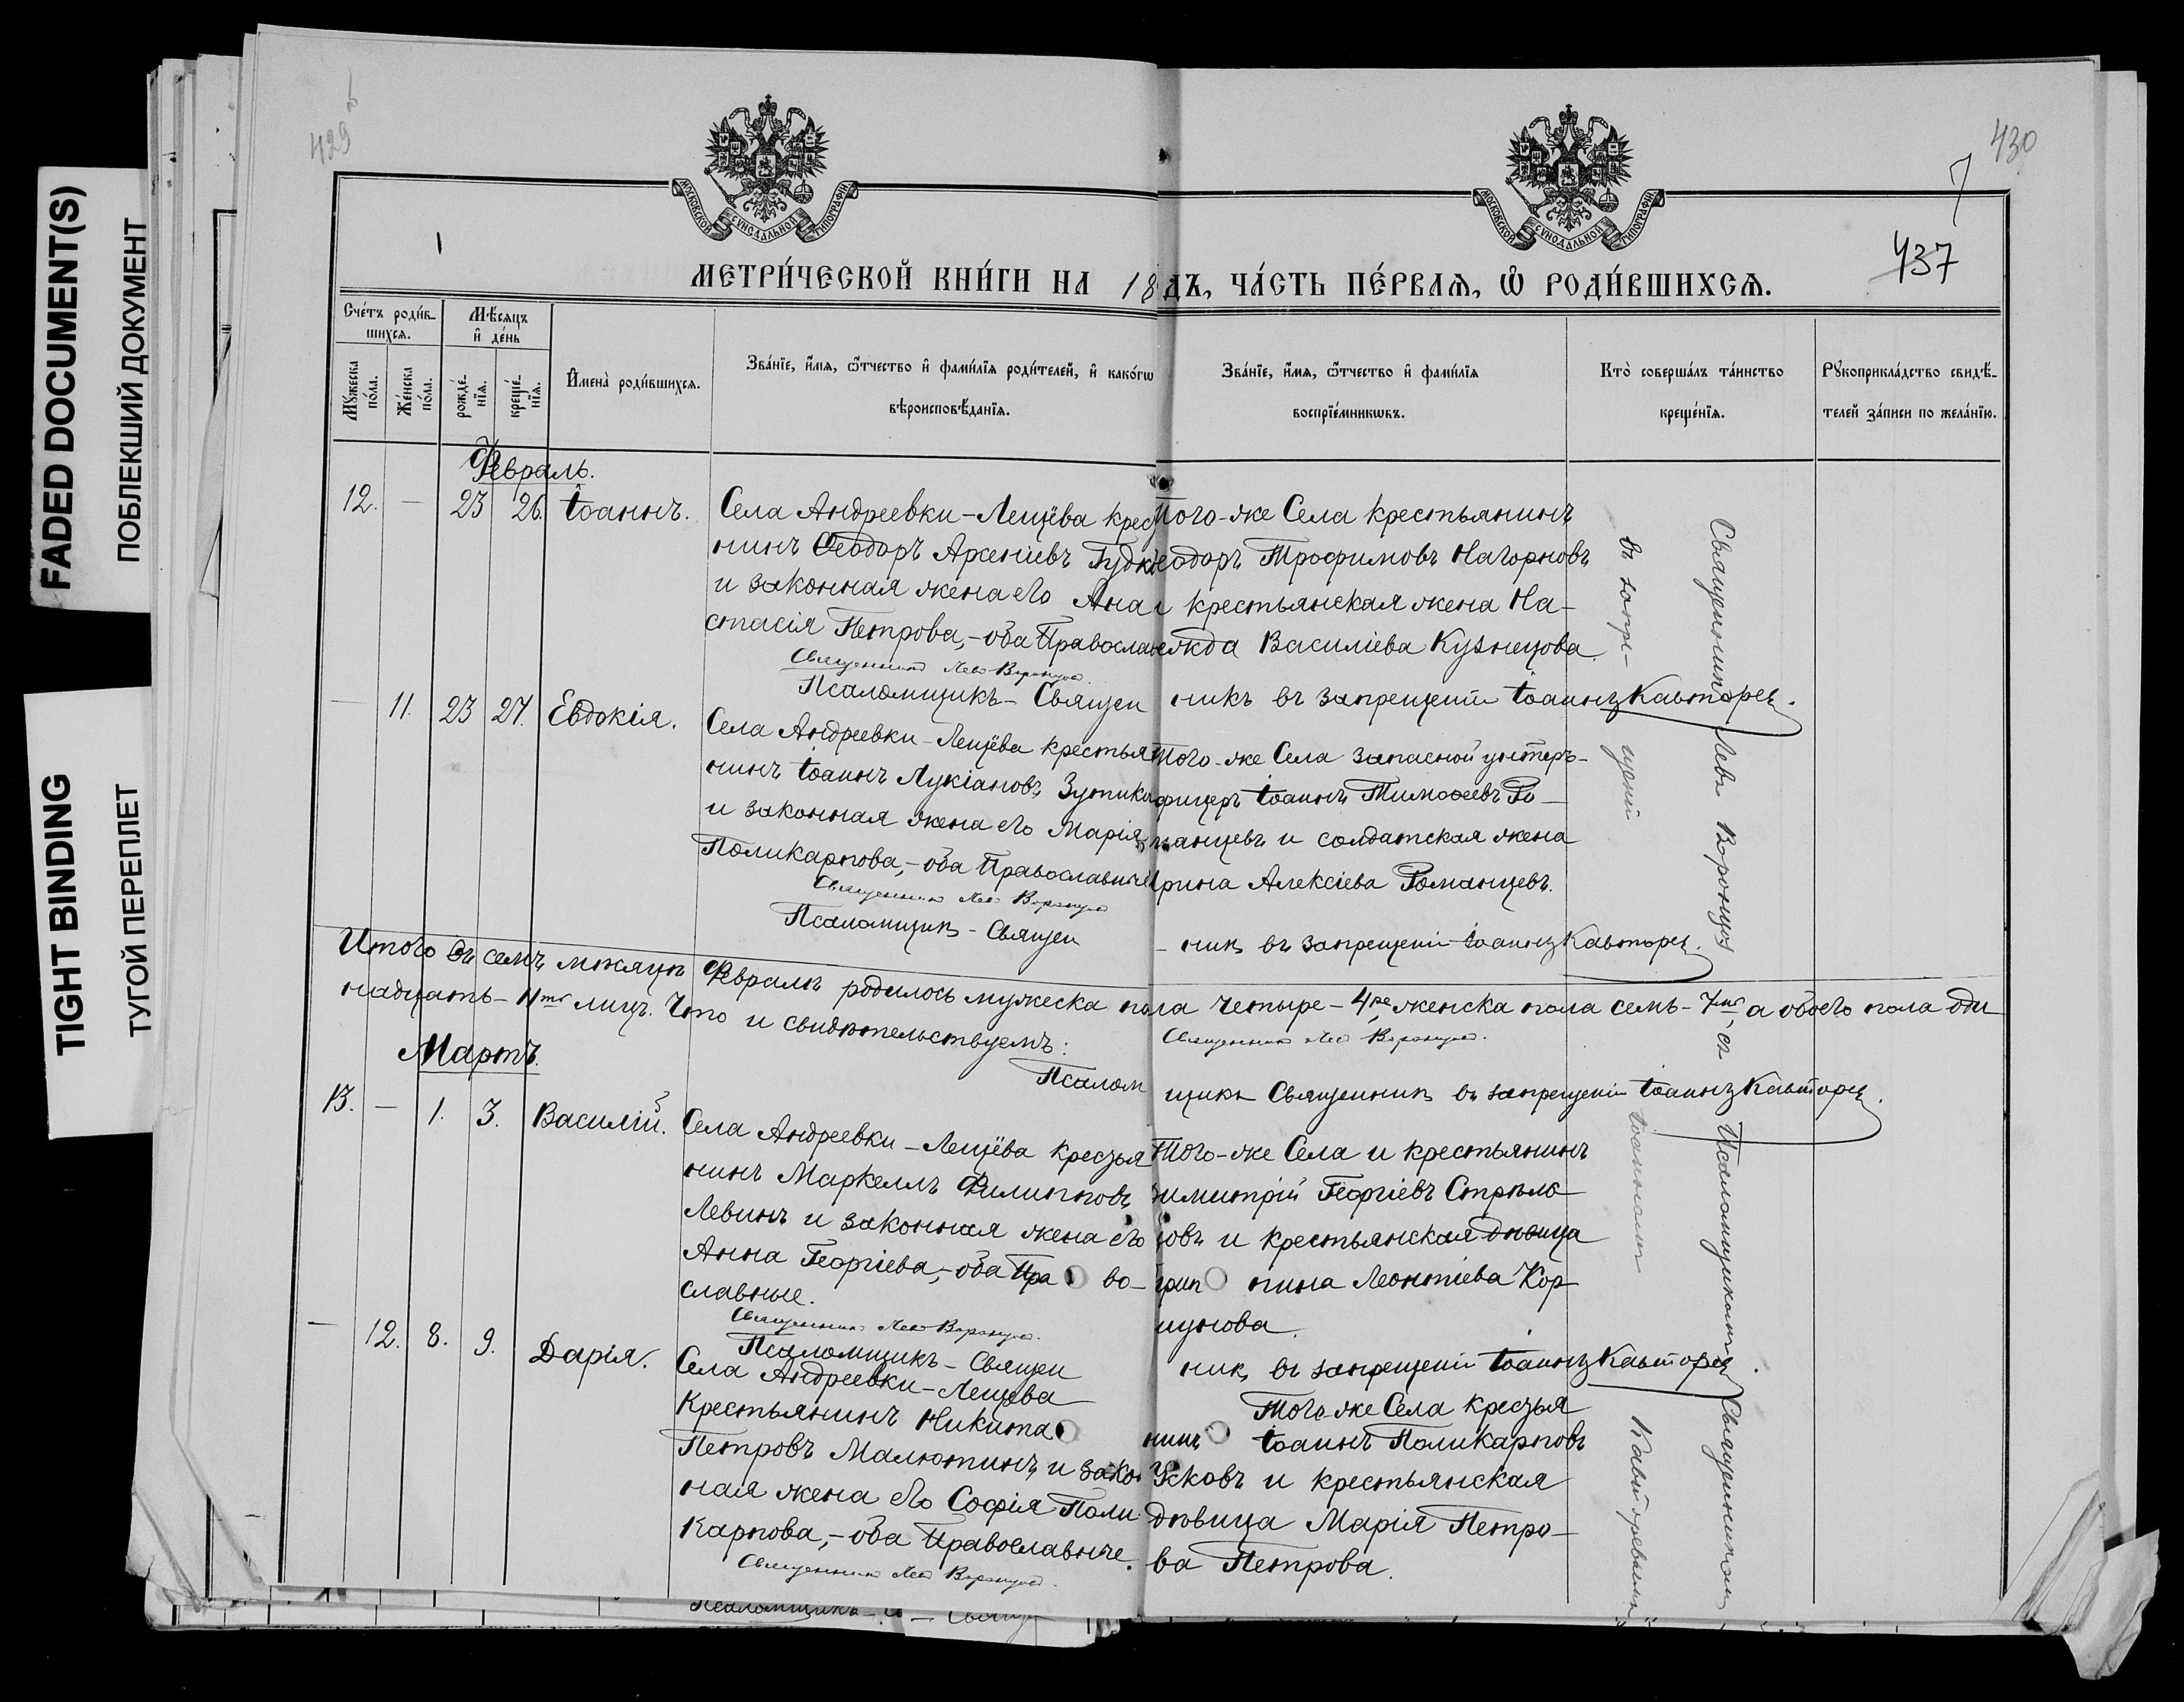 FADED DOCUMENT(S)
ПОБЛЕКШИЙ ДОКУМЕНТ
TIGHT BINDING
ТУГОЙ ПЕРЕПЛЕТ
429
430
7
437
1
МОСКОВСКОЙ СУНОДАЛЬНОЙ ТИПОГРАФІИ
МОСКОВСКОЙ СУНОДАЛЬНОЙ ТИПОГРАФІИ
МЕТРИ́ЧЕСКОЙ КНИ́ГИ НА 18
ДЪ, ЧА́СТЬ ПЕ́РВАѦ, Ѡ҆ РОДИ́ВШИХСѦ.
Сче́тъ роди́в-
шихсѧ.
Мѣ́сѧцъ
и҆ де́нь
Мꙋ́жеска
по́ла.
Же́нска
по́ла.
рожде́-
нїѧ.
креще́-
нїѧ.
И҆мена̀ роди́вшихсѧ.
Зва́нїе, и҆́мѧ, ѻ҆́тчество и҆ фами́лїѧ роди́телей, и҆ како́гѡ
вѣроисповѣ́данїѧ.
Зва́нїе, и҆́мѧ, ѻ҆́тчество и҆ фами́лїѧ
воспрїе́мникѡвъ.
Кто̀ соверша́лъ та́инство
креще́нїѧ.
Рꙋкоприкла́дство свидѣ́-
телей за́писи по жела́нїю.
Февраль.
12. — 23 26. Іоаннъ.
Села Андреевки-Лещёва крес
нинъ Ѳеодоръ Арсеніевъ Гудк
и законная жена его Ана
стасія Петрова,-оба Православ
Священникъ Левъ Воронцовъ.
Псаломщикъ - Священ
Того-же Села крестьянинъ
еодоръ Трофимовъ Нагорновъ
и крестьянская жена На-
ежда Василіева Кузнецова.
никъ въ запрещеніи Іоаннъ Кавторев.
— 11. 23 27. Евдокія.
Села Андреевки-Лещёва крестья
нинъ Іоаннъ Лукіановъ Зупико
и законная жена его Марія
Поликарпова,-оба Православные
Священникъ Левъ Воронцовъ
Псаломщикъ - Священ
Того-же Села запасной унтеръ-
фицеръ Іоаннъ Тимоѳеевъ Ро-
манцевъ и солдатская жена
рина Алексіева Романцевъ.
- никъ въ запрещеніи Іоаннъ Кавторев.
Итого въ семъ мѣсяцѣ Февралѣ родилось мужеска пола четыре - 4ре, женска пола семь - 7мь, а обоего пола оди
надцать - 11ть лицъ. Что и свидѣтельствуемъ:
Священникъ Левъ Воронцовъ.
Псалом
щикъ Священникъ въ запрещеніи Іоаннъ Кавторев.
Мартъ.
13. — 1. 3. Василій.
Села Андреевки-Лещёва крестья
нинъ Маркеллъ Филипповъ
Левинъ и законная жена его
Анна Георгіева,-оба Пра во-
славные.
Священникъ Левъ Воронцовъ.
Псаломщикъ - Священ
Того-же Села и крестьянинъ
имитрій Георгіевъ Стрѣло
овъ и крестьянская дѣвица
грип пина Леонтіева Кор
шунова.
никъ въ запрещеніи Іоаннъ Кавторев.
— 12. 8. 9. Дарія.
Села Андреевки-Лещёва
Крестьянинъ Никита
Петровъ Малютинъ и закон
ная жена его Софія Поли
карпова,-оба Православные.
Священникъ Левъ Воронцовъ.
Того-же Села крестья
нинъ Іоаннъ Поликарповъ
Усковъ и крестьянская
дѣвица Марія Петро-
ва Петрова.
Священникъ Левъ Воронцовъ съ Псаломщикомъ Священникомъ
въ запре-щеніи Іоанномъ Кавторевымъ
Псаломщикъ - Свящ